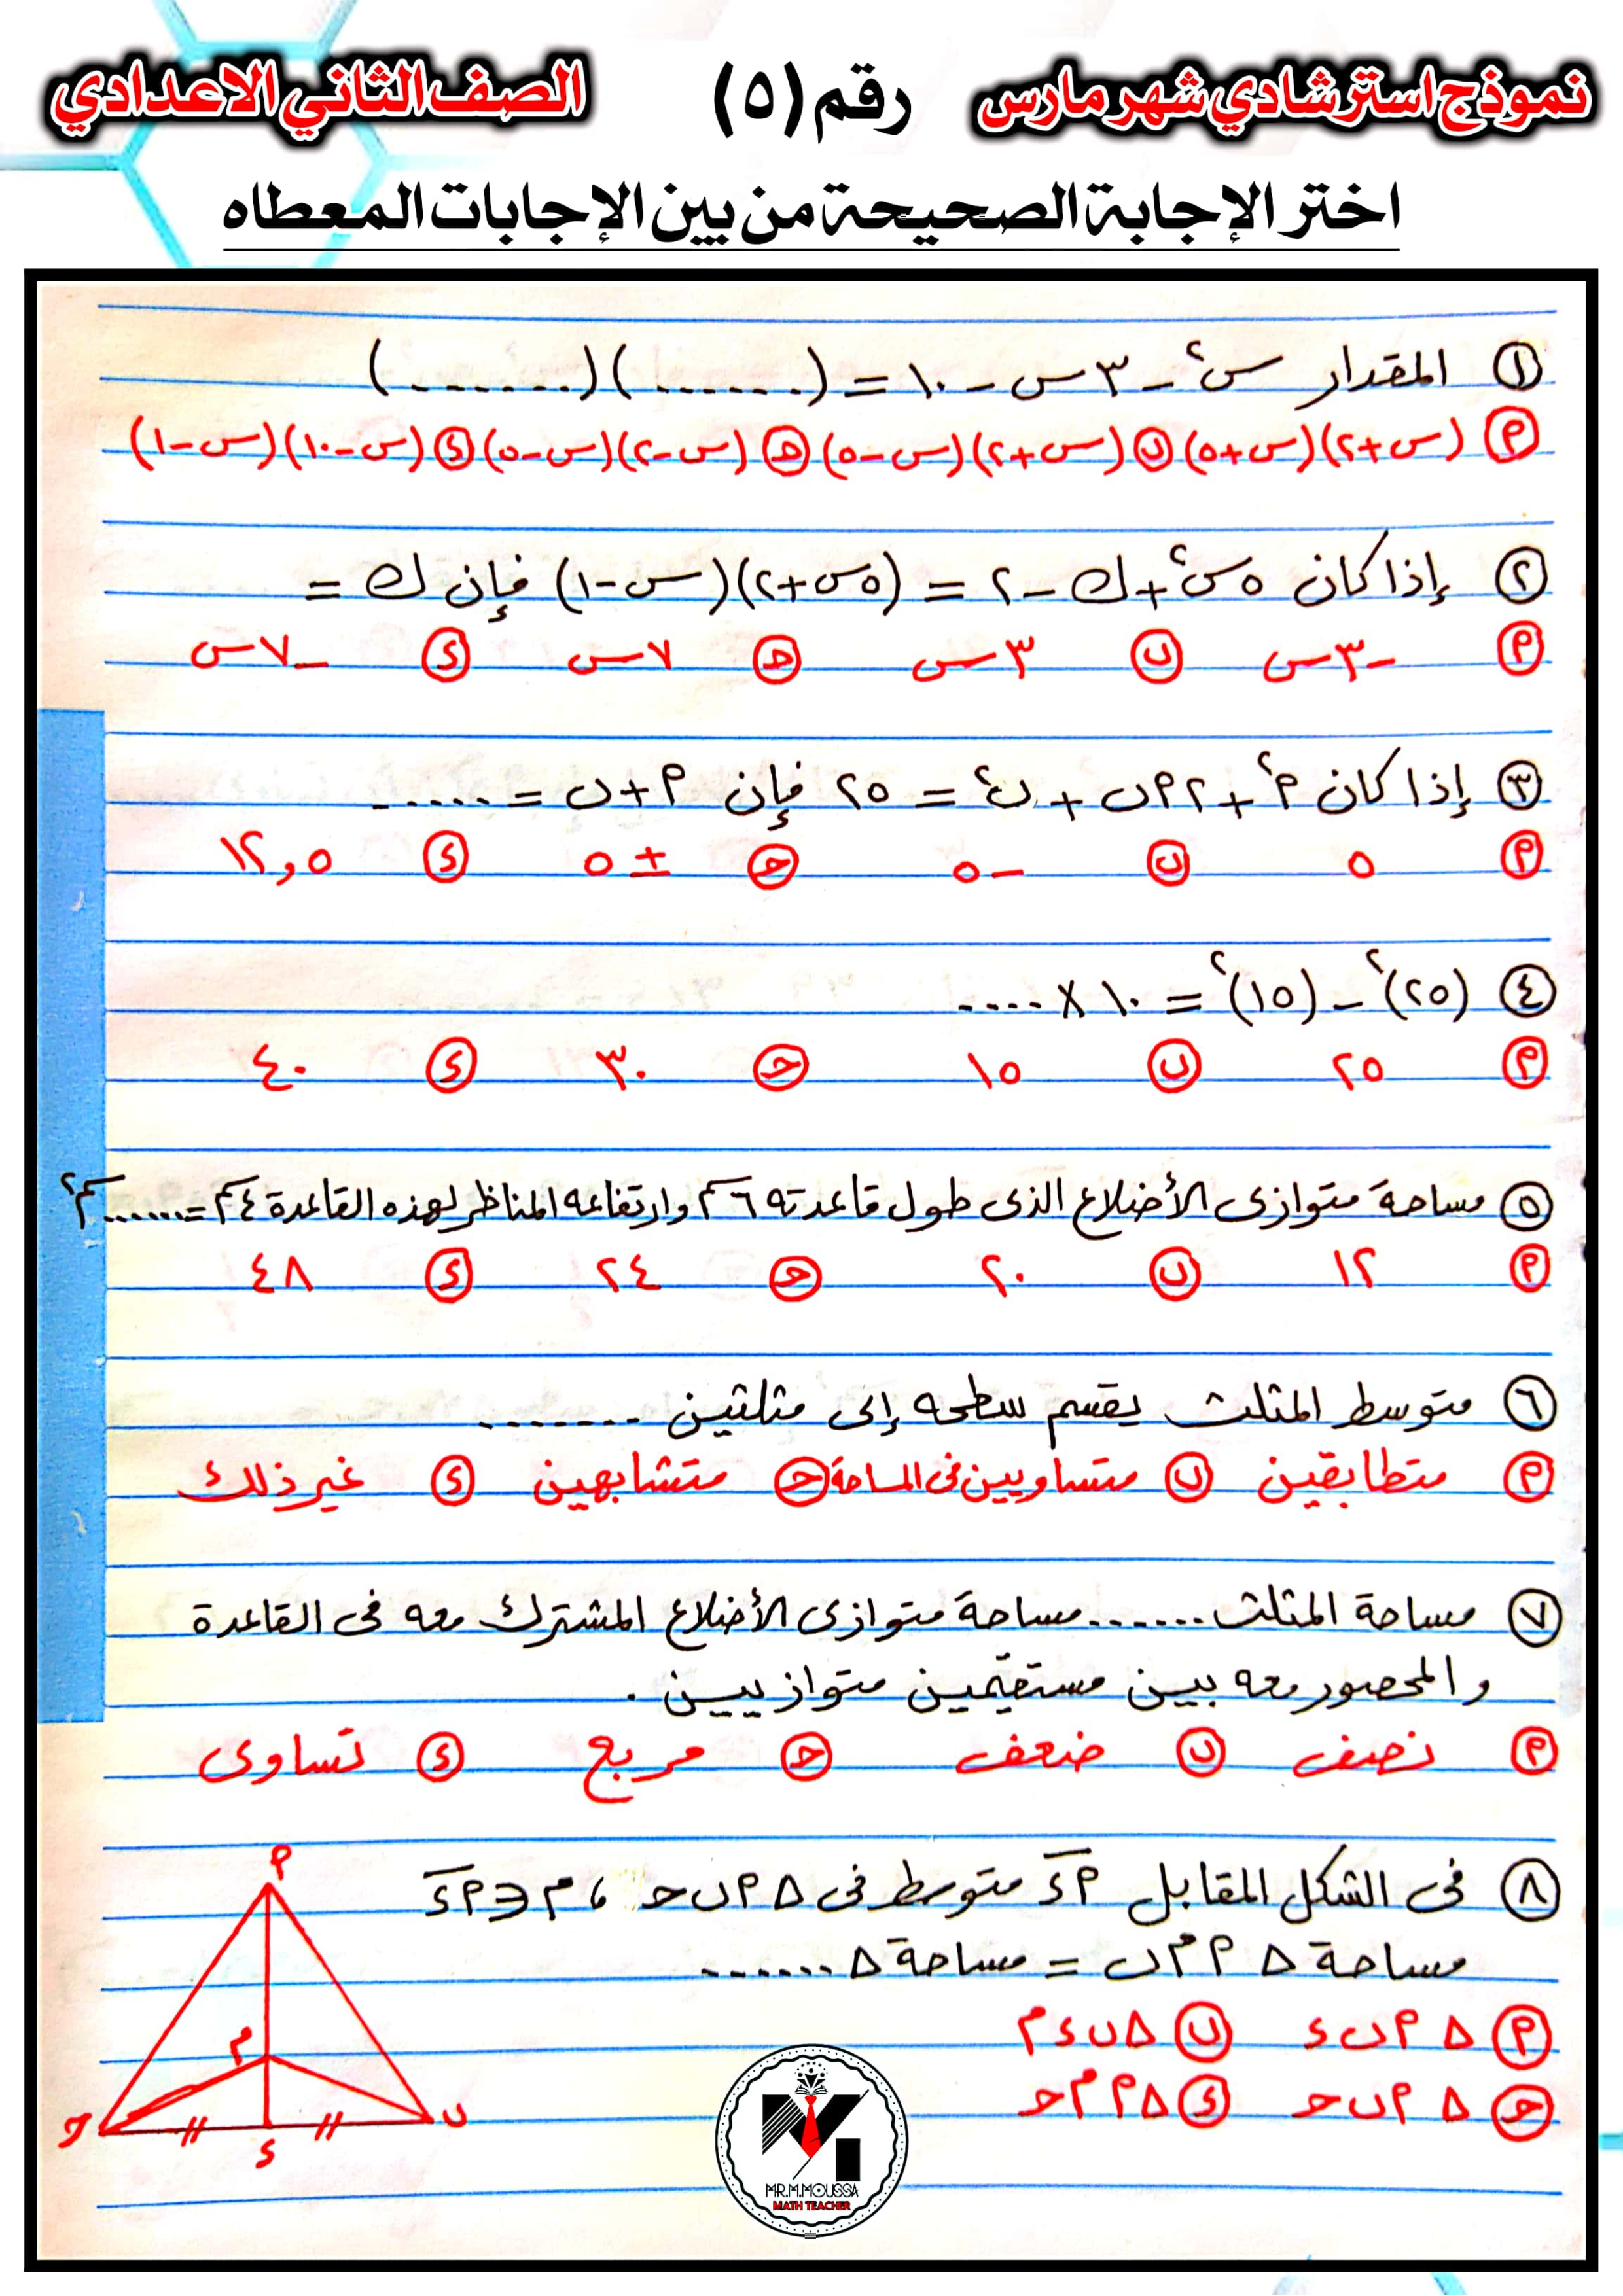 نموذج استرشادي شهر مارس رقم (٥) الصف الثاني الاعدادي
اختر الإجابة الصحيحة من بين الإجابات المعطاه
١ المقدار س٢ - ٣س - ١٠ = (.......)(.......)
م (س+٢)(س+٥) ب (س+٢)(س-٥) ح (س-٢)(س-٥) ء (س-١٠)(س-١)
٢ إذا كان ٥س٢ + ك - ٢ = (٥س+٢)(س-١) فإن ك =
م -٣س ب ٣س ح ٧س ء -٧س
٣ إذا كان م٢ + ٢م ب + ب٢ = ٢٥ فإن م + ب = ......
م ٥ ب -٥ ح ± ٥ ء ١٢,٥
٤ (٢٥)٢ - (١٥)٢ = ١٠ × ....
م ٢٥ ب ١٥ ح ٣٠ ء ٤٠
٥ مساحة متوازى الأضلاع الذى طول قاعدته ٦سم وارتفاعه المناظر لهذه القاعدة ٤سم = ......سم٢
م ١٢ ب ٢٠ ح ٢٤ ء ٤٨
٦ متوسط المثلث يقسم سطحه إلى مثلثين .......
م متطابقين ب متساويين فى المساحة ح متشابهين ء غير ذلك
٧ مساحة المثلث ...... مساحة متوازى الأضلاع المشترك معه فى القاعدة
والمحصور معه بين مستقيمين متوازيين .
م نصف ب ضعف ح مربع ء تساوى
٨ فى الشكل المقابل م ء متوسط فى Δ م ب ح ، م ∈ م ء
مساحة Δ م م ب = مساحة Δ .......
م Δ م ب ء ب Δ ب ء م
ح Δ م ب ح ء Δ م م ح
م
م
ح
ء
ب
MR.M.MOUSSA
MATH TEACHER